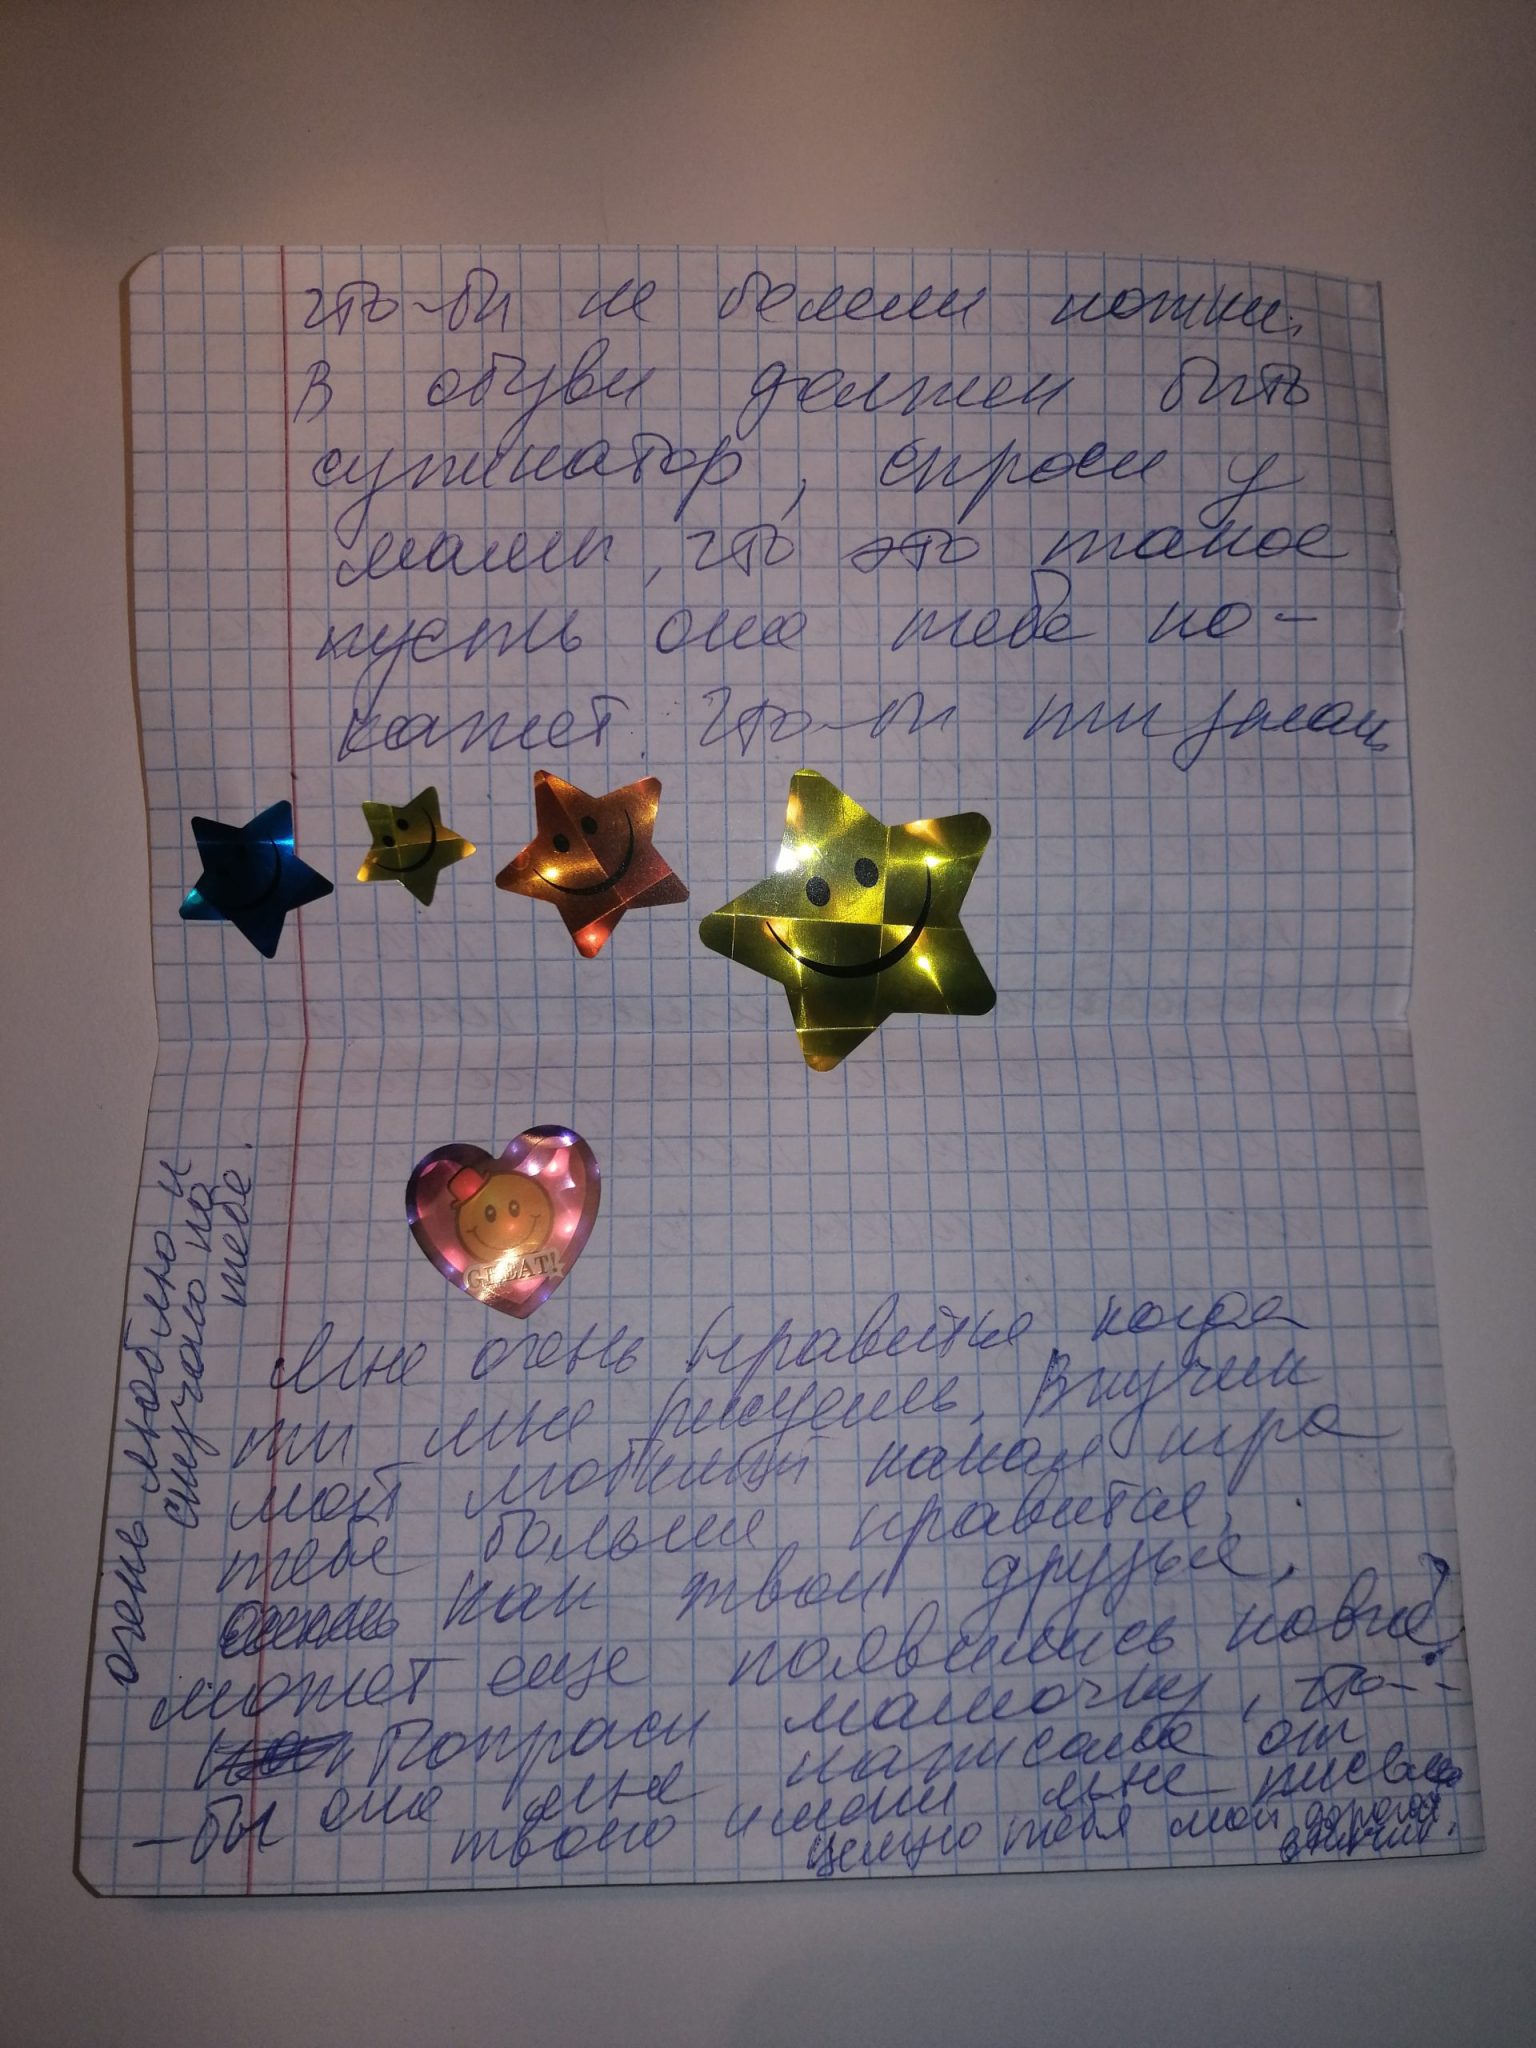 что-бы не болели ножки.
В обуви должен быть
супинатор, спроси у
мамы, что это такое
пусть она тебе по-
кажет. что-бы ты знал,
GREAT!
Мне очень нравится когда
ты мне рисуешь. Внучек
мой любимый какая игра
тебе больше нравится,
как твои друзья,
может еще появились новые?
Попроси мамочку, что-
-бы она мне написала от
твоего имени мне письмо
Целую тебя мой дорогой
внучик.
очень люблю и
скучаю по
тебе.